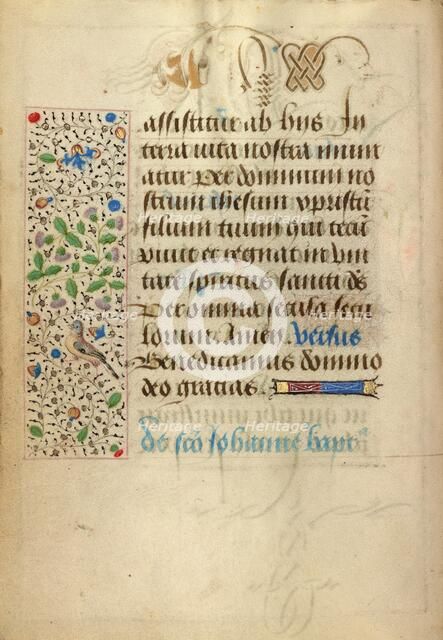 assistitur ab hijs In
terra vita nostra muni
atur Per dominum no
strum ihesum xpristū
filium tuum qui tecū
vivit et regnat in vni
tate spiritus sancti ds
Per omnia secula secu
lorum. Amen. Versus
Benedicamus domino
deo gratias.
de sco Johanne bapt